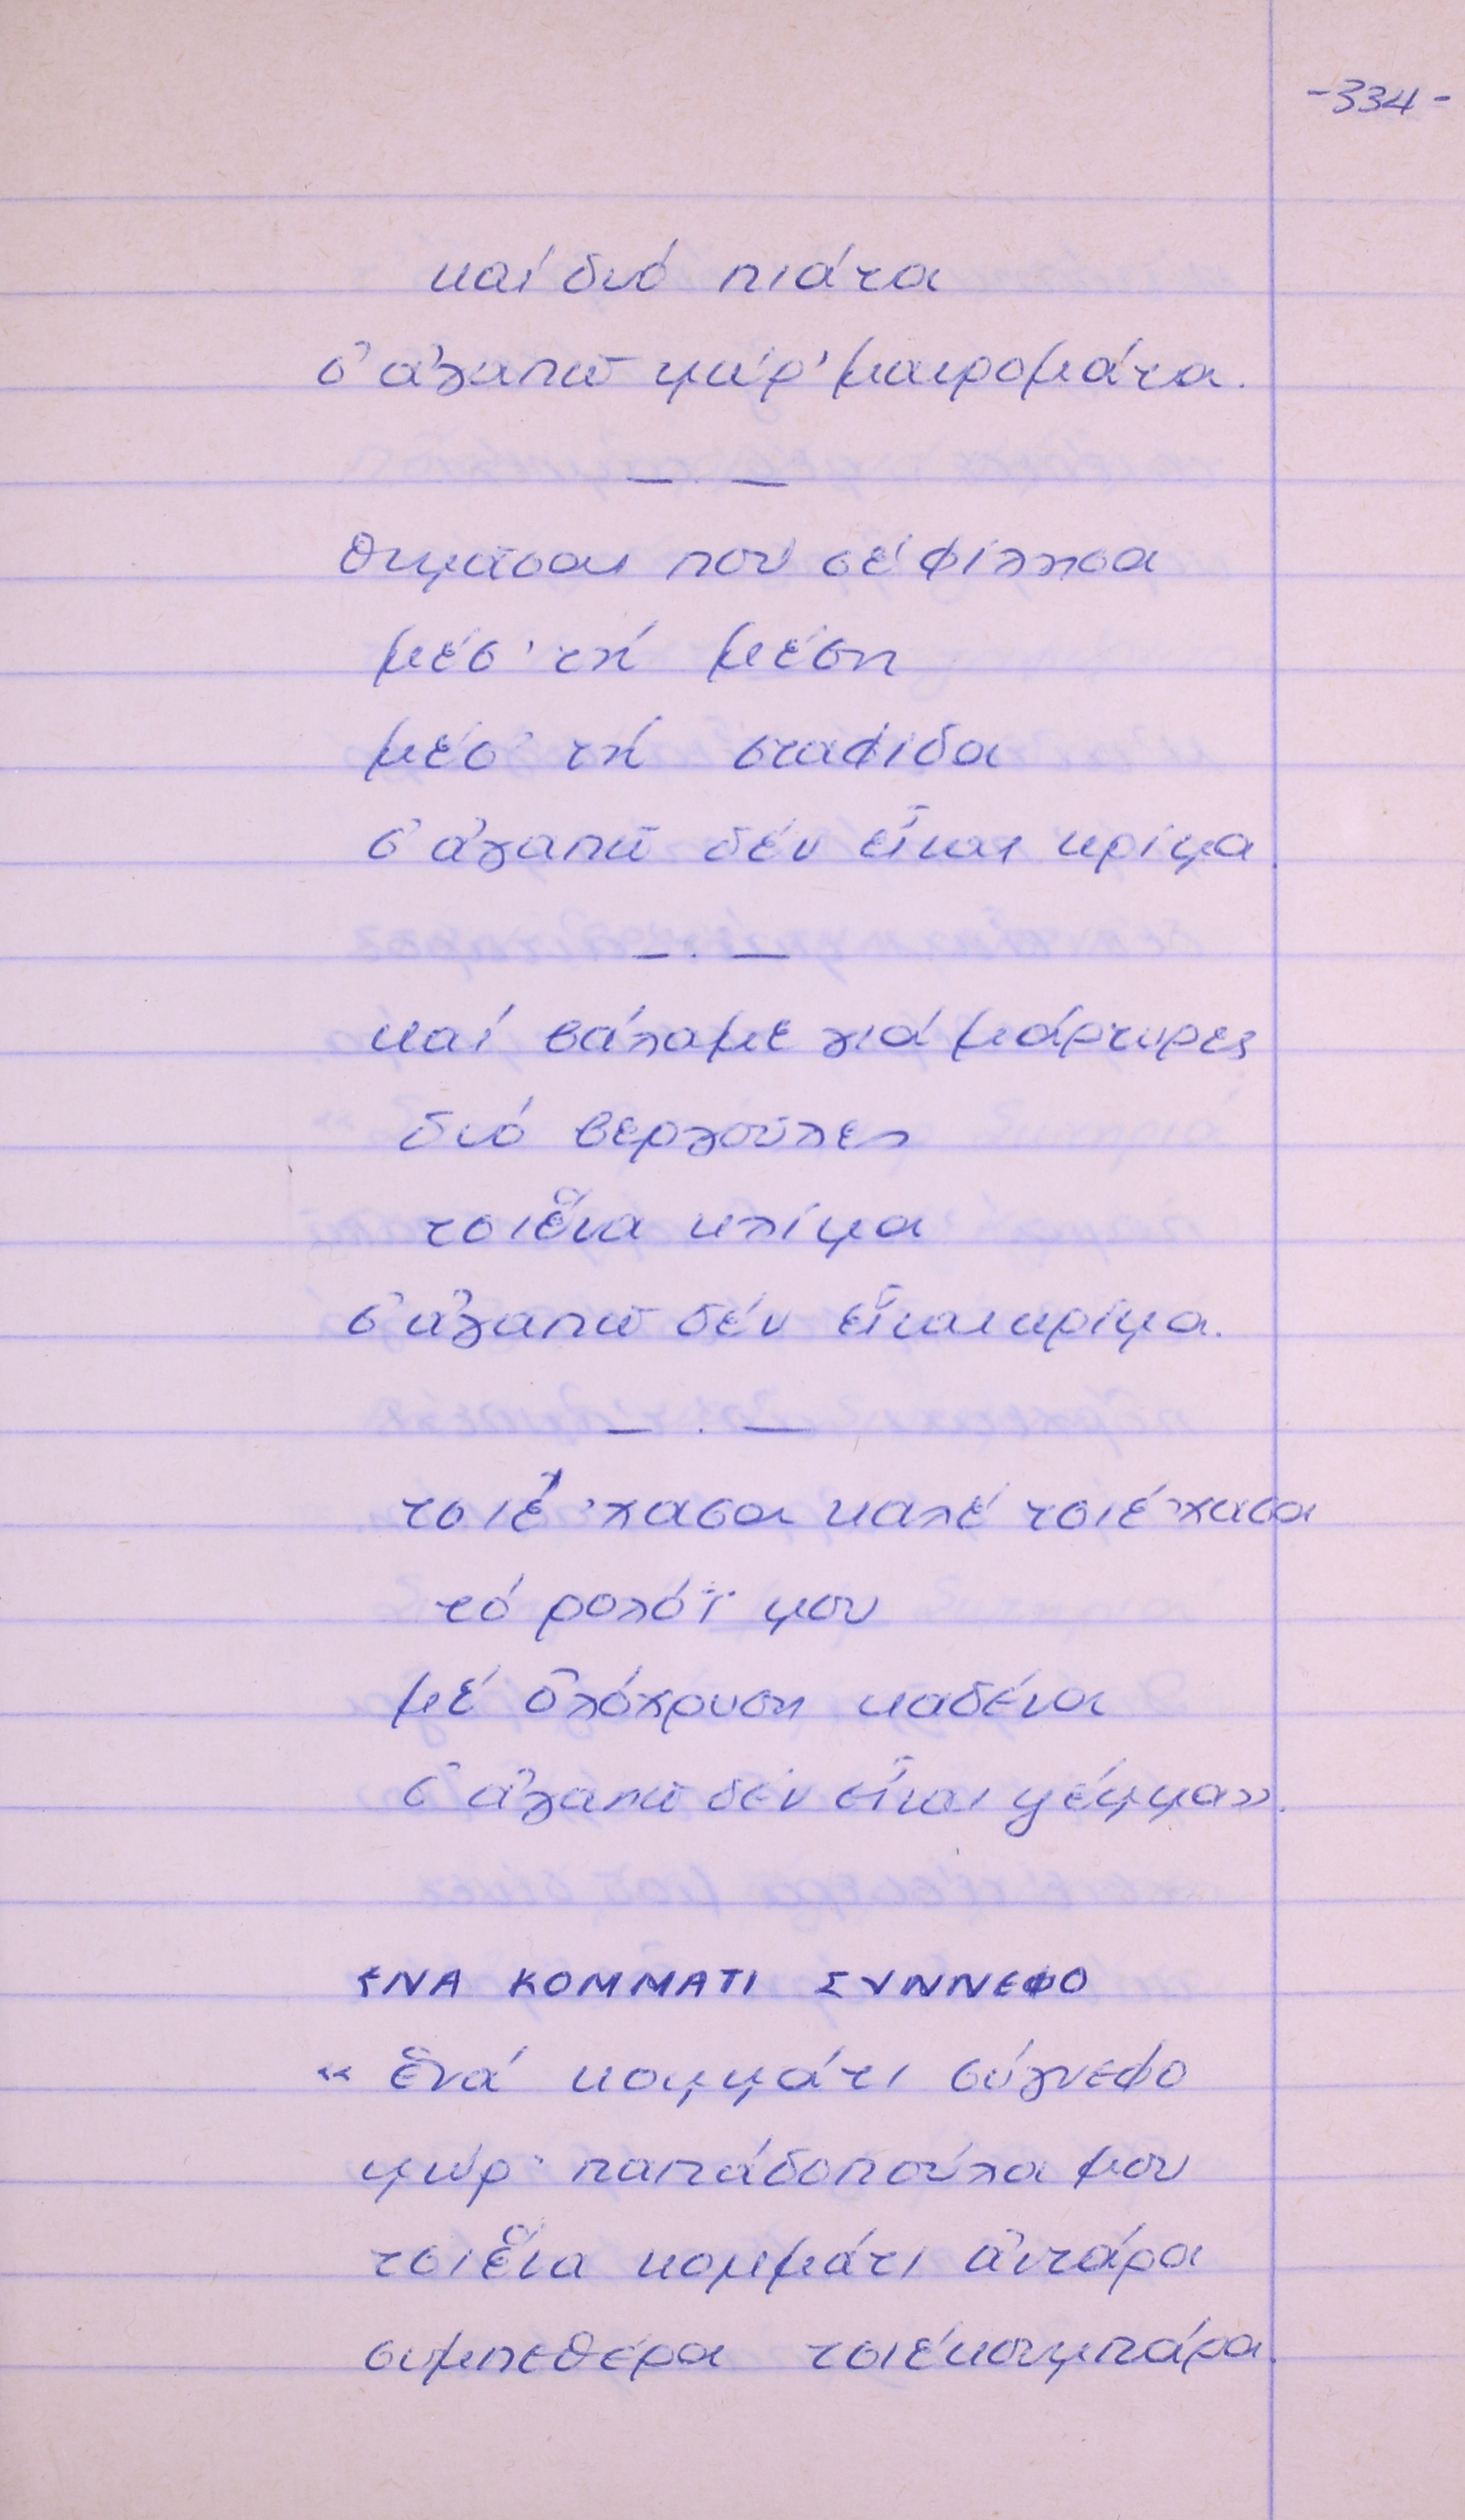 -334-
καί δυό πιάτα
σ' ἀγαπῶ μωρ' μαυρομάτα.
— . —
θυμᾶσαι πού σέ φίλησα
μέσ' τή μέση
μέσ' τή σταφίδα
σ' ἀγαπῶ δέν εἶναι κρίμα.
— . —
καί βάλαμε γιά μάρτυρες
δυό βεργοῦλες
τσιἕνα κλίμα
σ' ἀγαπῶ δέν εἶναι κρίμα.
— . —
τσιέ 'χασα καλέ τσιέ 'χασα
τό ρολόϊ μου
μέ ὁλόχρυση καδένα
σ' ἀγαπῶ δέν εἶναι ψέμμα».
ΕΝΑ ΚΟΜΜΑΤΙ ΣΥΝΝΕΦΟ
« ἕνά κομμάτι σύγνεφο
μωρ' παπάδοπούλα μου
τσιἕνα κομμάτι ἀντάρα
συμπεθέρα τσιέκουμπάρα.